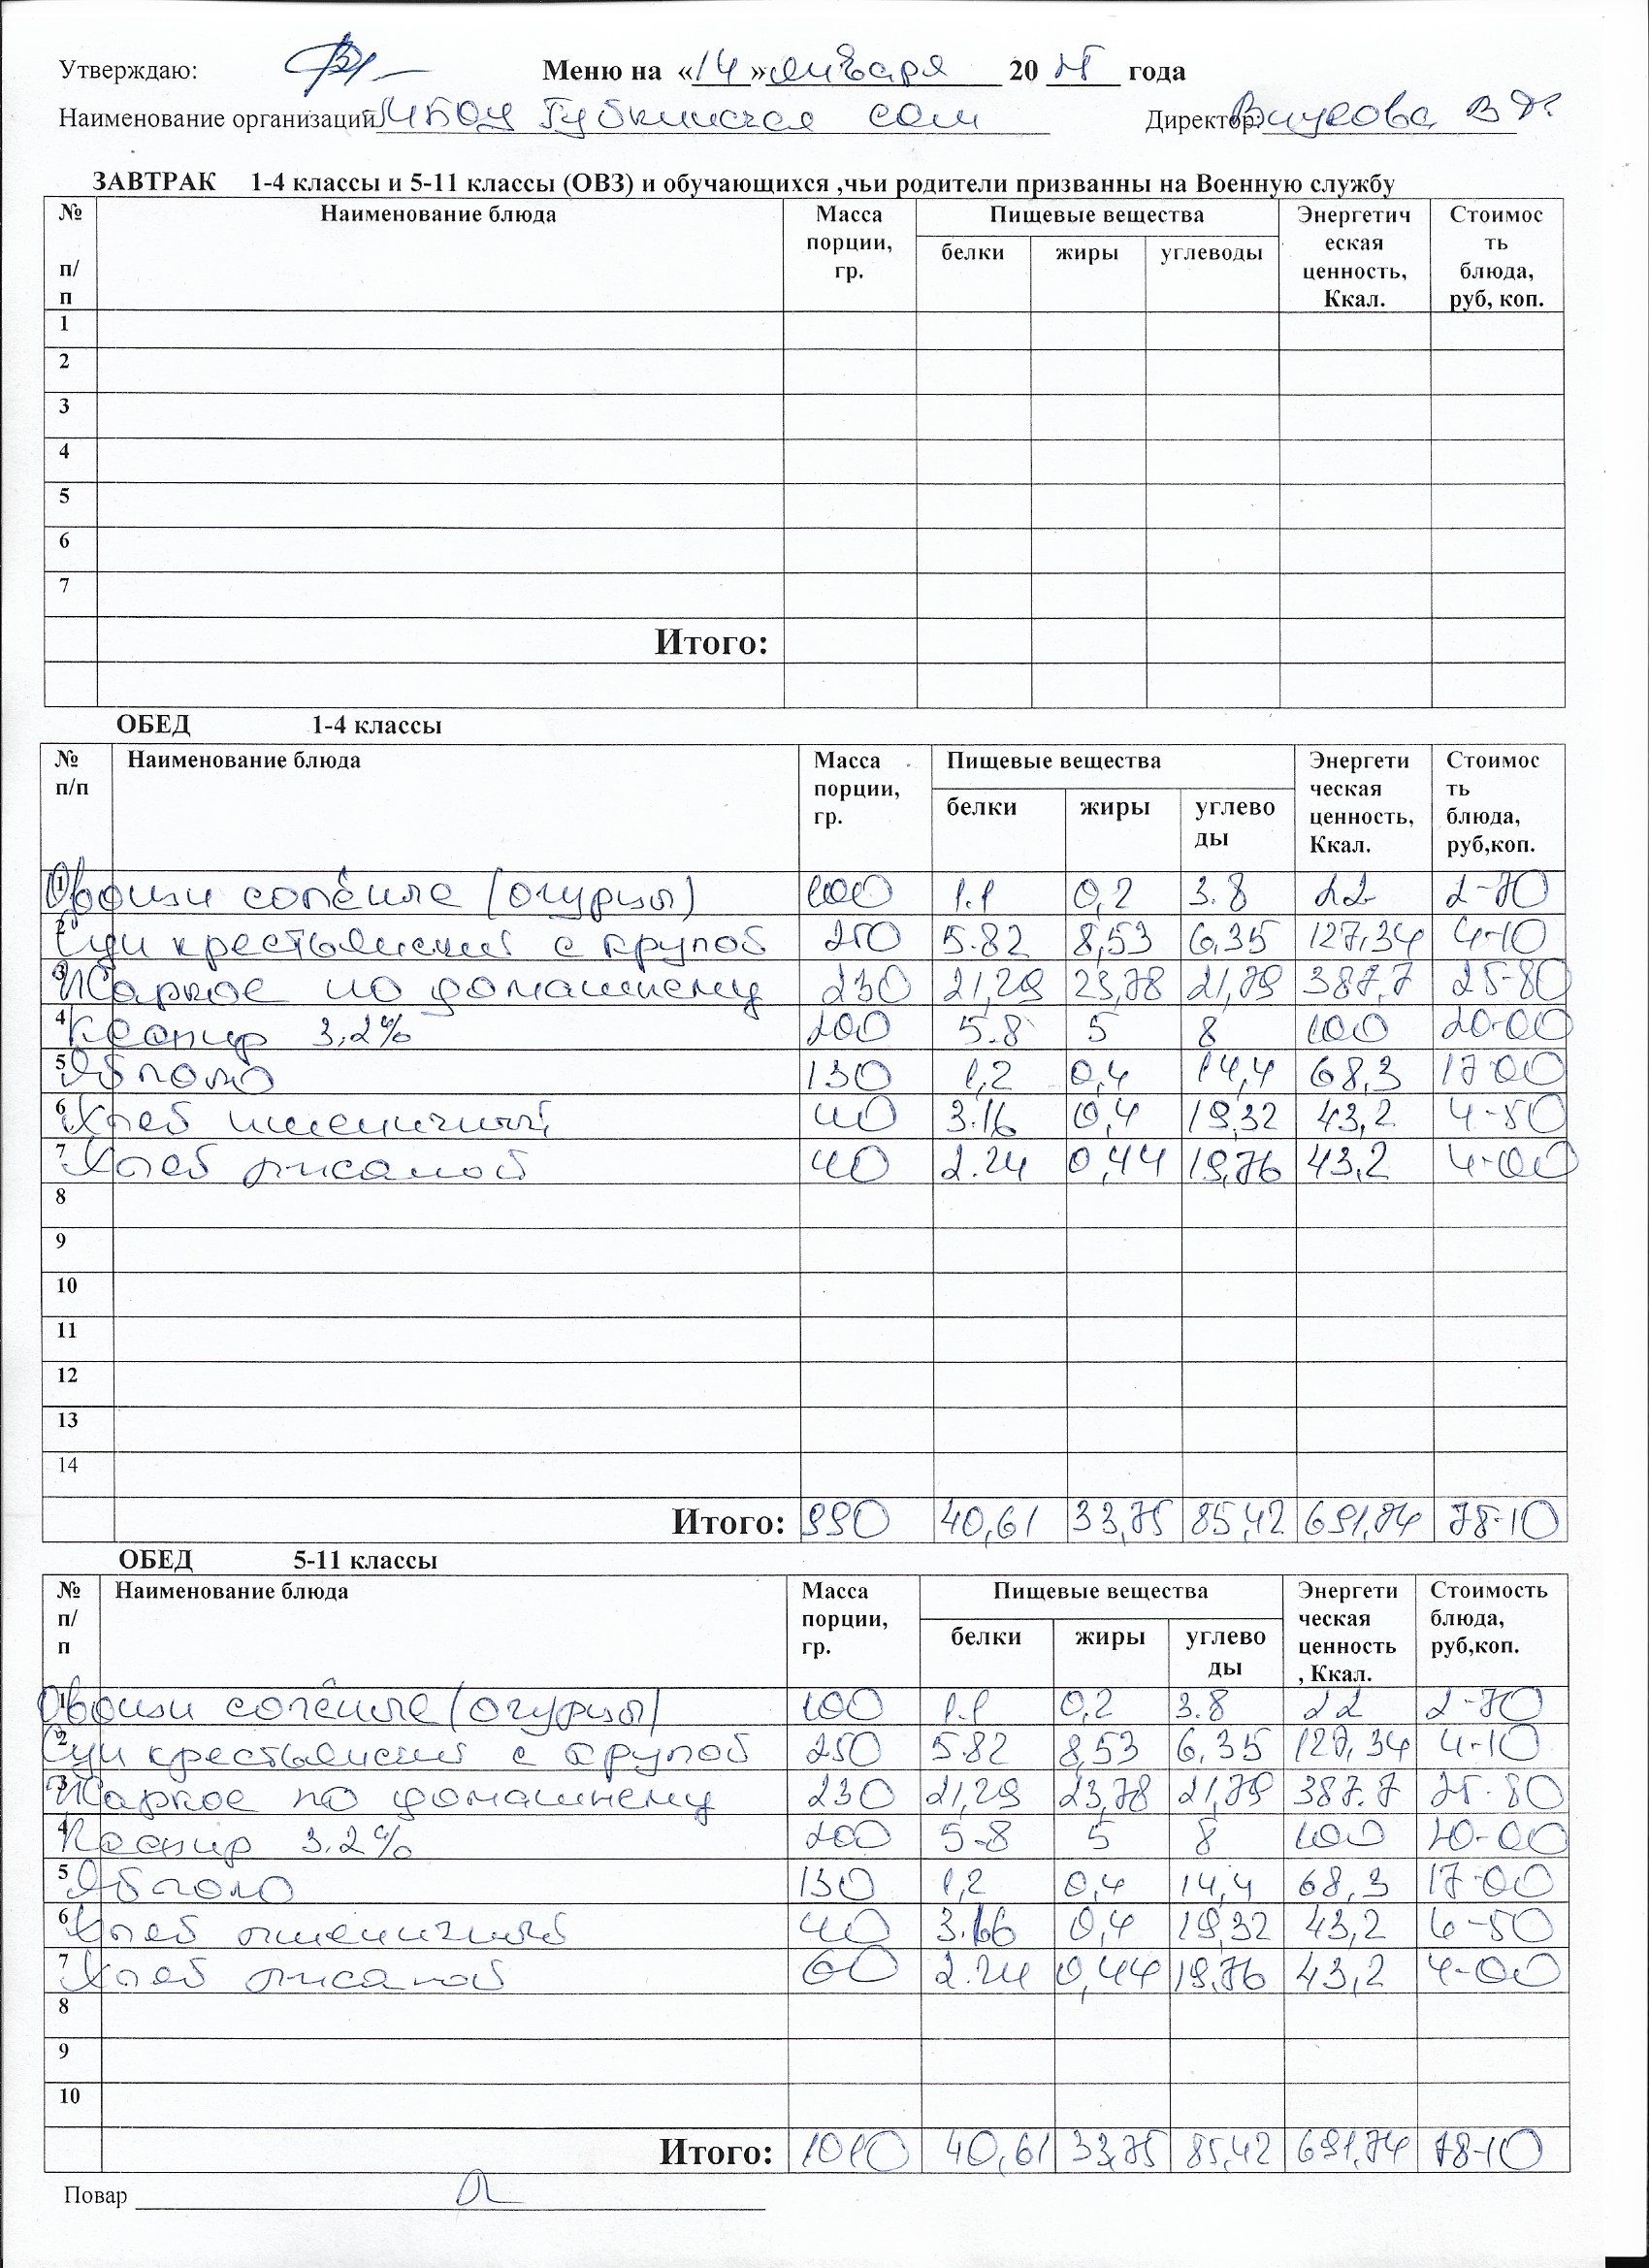 Утверждаю: Меню на «14» января 20 25 года
Наименование организации МБОУ Губкинская сош Директор: В
ЗАВТРАК 1-4 классы и 5-11 классы (ОВЗ) и обучающихся ,чьи родители призванны на Военную службу
№ п/п Наименование блюда Масса порции, гр. Пищевые вещества Энергетическая ценность, Ккал. Стоимость блюда, руб, коп.
белки жиры углеводы
1
2
3
4
5
6
7
Итого:
ОБЕД 1-4 классы
№ п/п Наименование блюда Масса порции, гр. Пищевые вещества Энергетическая ценность, Ккал. Стоимость блюда, руб,коп.
белки жиры углеводы
1 Овощи солёные (огурцы) 100 1.1 0,2 3.8 22 2-70
2 Суп крестьянский с крупой 250 5.82 8,53 6,35 127,34 4-10
3 Жаркое по домашнему 230 21,29 23,78 21,79 387,7 25-80
4 3,2% 200 5.8 5 8 100 20-00
5 Яблоко 130 1,2 0,4 14,4 68,3 17-00
6 Хлеб пшеничный 40 3.16 0,4 19,32 43,2 4-50
7 Хлеб ржаной 40 2.24 0,44 19,76 43,2 4-00
8
9
10
11
12
13
14
Итого: 990 40,61 33,75 85,42 691,74 78-10
ОБЕД 5-11 классы
№ п/п Наименование блюда Масса порции, гр. Пищевые вещества Энергетическая ценность, Ккал. Стоимость блюда, руб,коп.
белки жиры углеводы
1 Овощи солёные (огурцы) 100 1.1 0,2 3.8 22 2-70
2 Суп крестьянский с крупой 250 5.82 8,53 6,35 127,34 4-10
3 Жаркое по домашнему 230 21,29 23,78 21,79 387.7 25-80
4 3.2% 200 5-8 5 8 100 20-00
5 Яблоко 130 1,2 0,4 14,4 68,3 17-00
6 Хлеб пшеничный 40 3.16 0,4 19,32 43,2 4-50
7 Хлеб ржаной 60 2.24 0,44 19,76 43,2 4-00
8
9
10
Итого: 1010 40,61 33,75 85,42 691,74 78-10
Повар